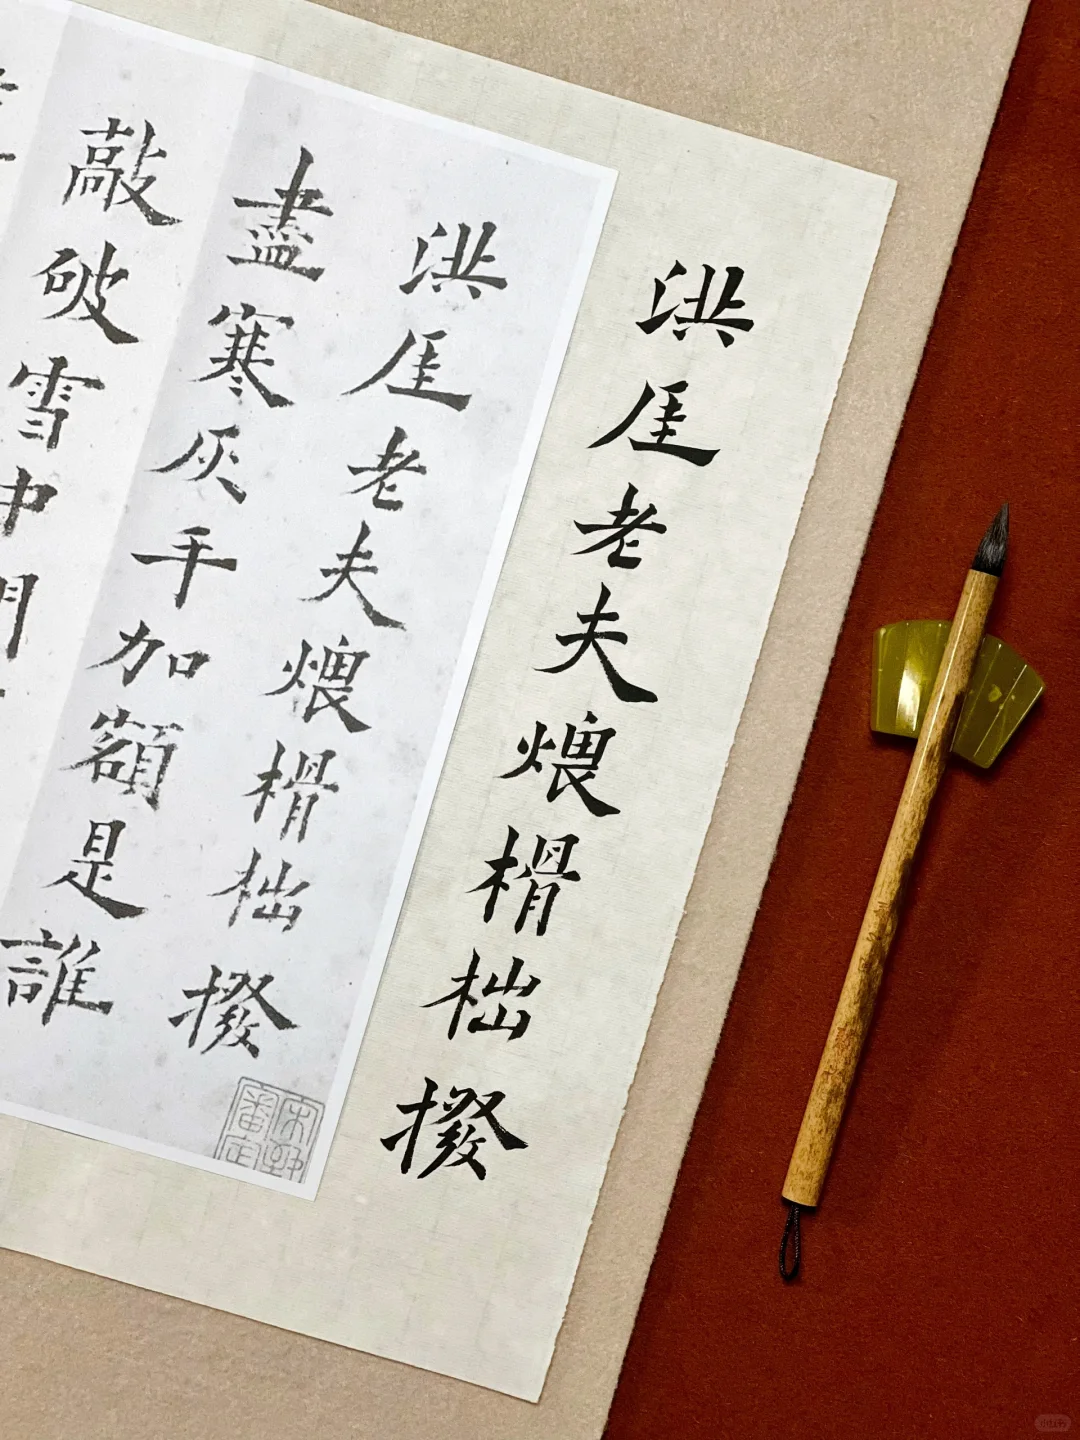 洪厓老夫煨榾柮撥
洪厓老夫煨榾柮撥
盡寒灰手加額是誰
敲破雪中門
宋犖審定
小红书